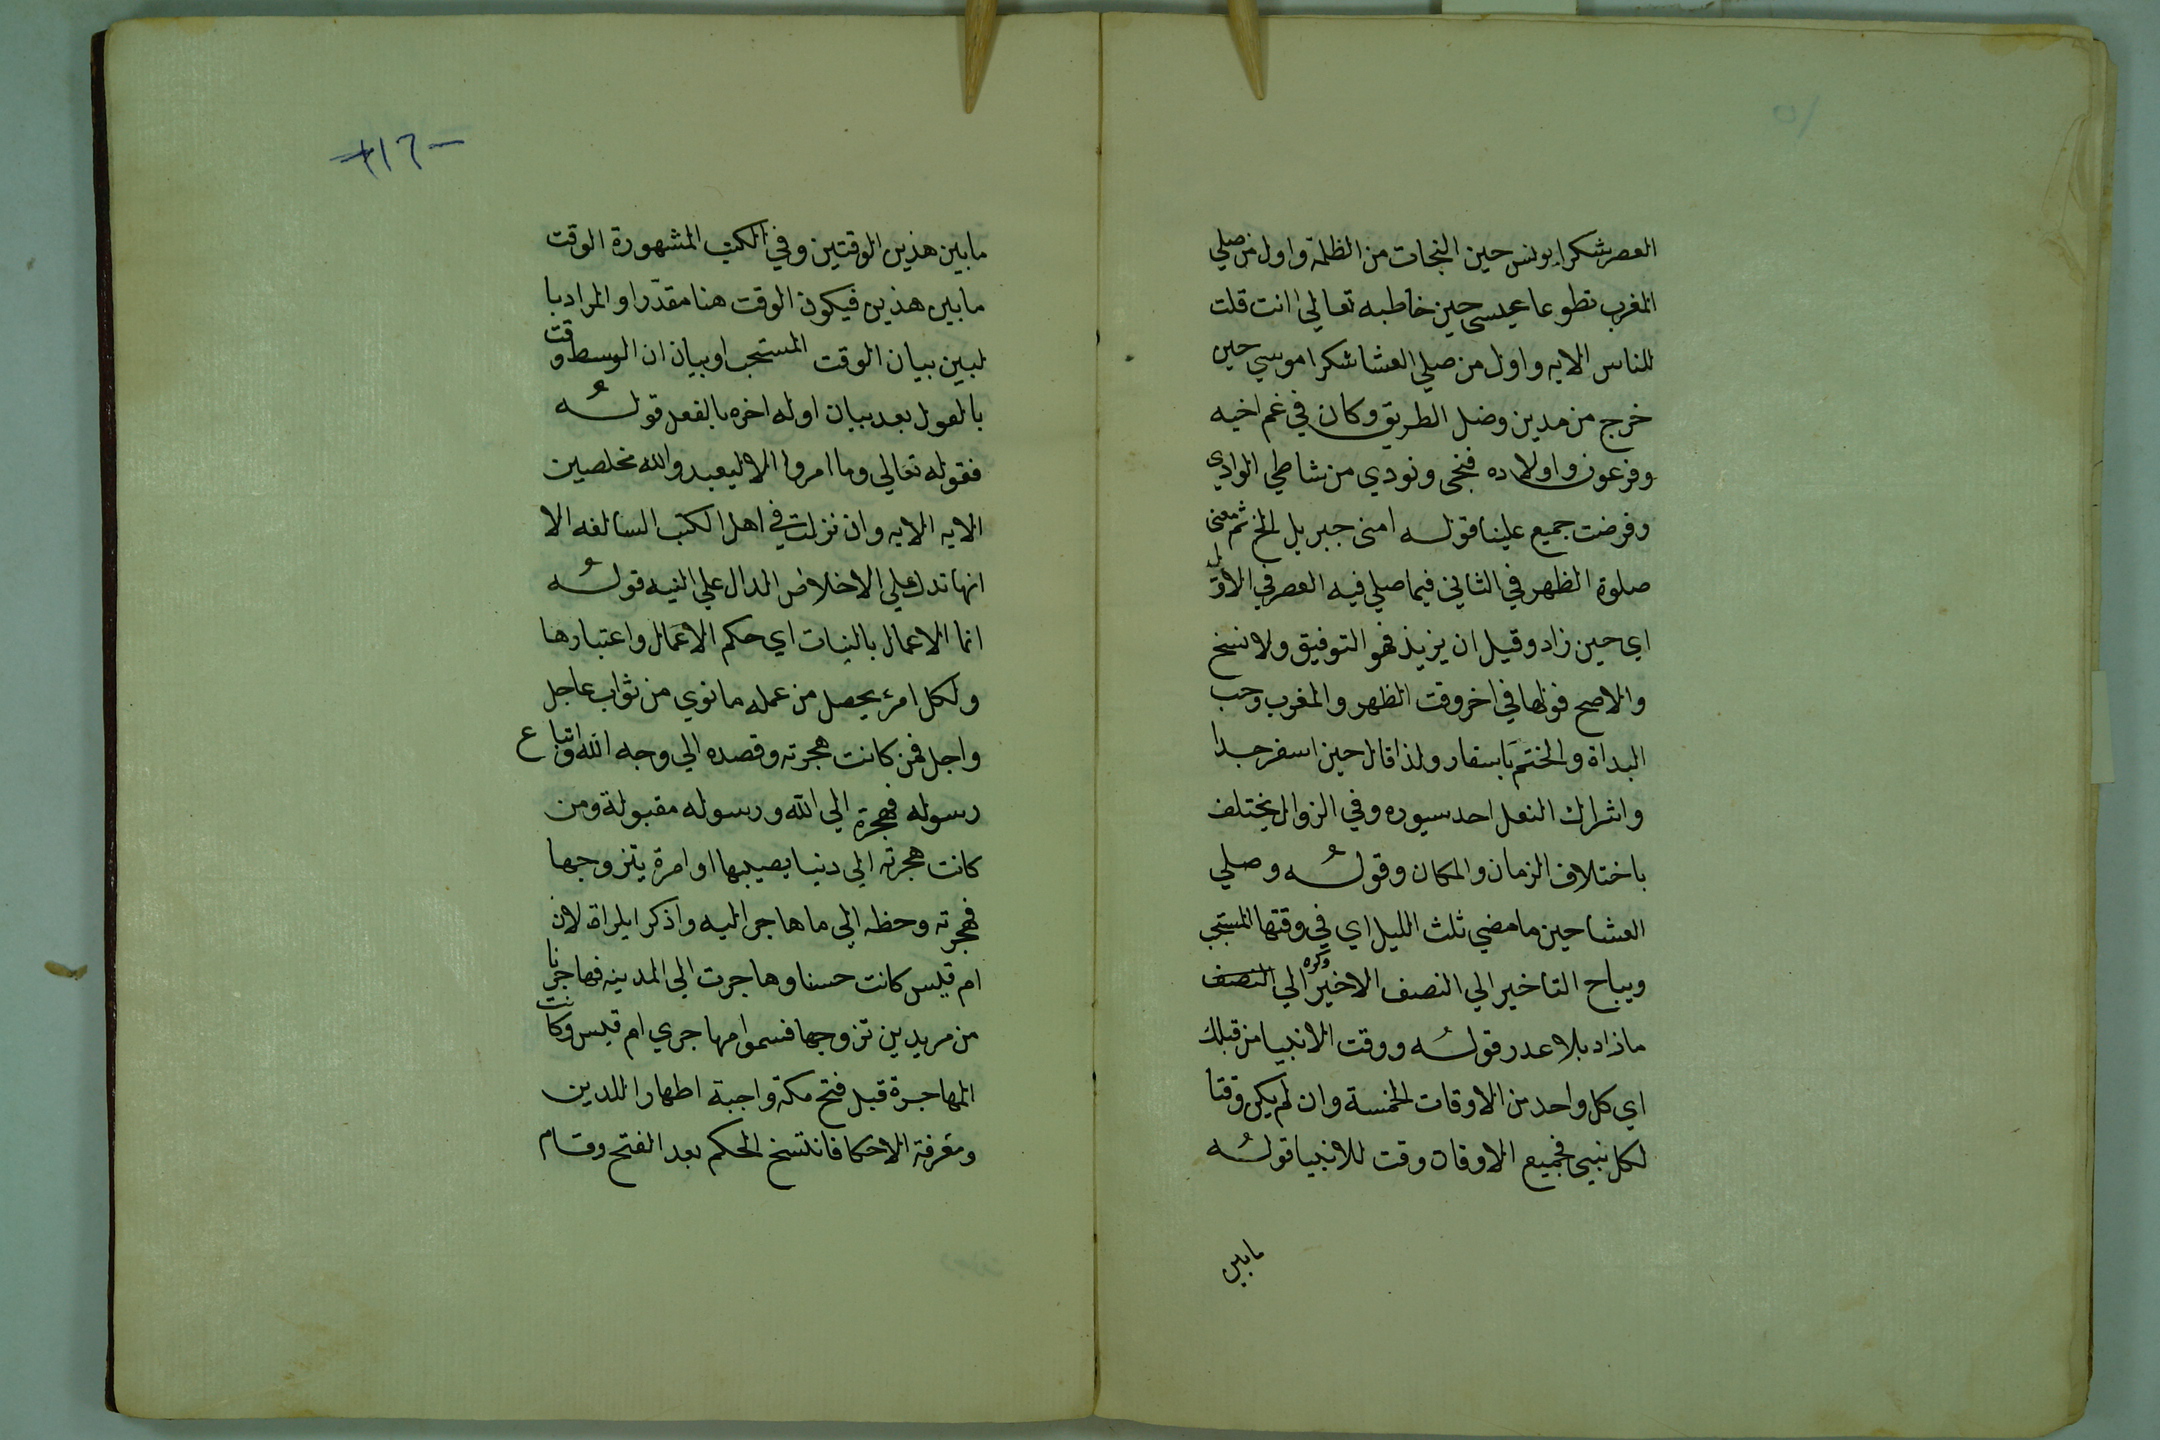 العصر شكرا يونس حين النجات من الظلمة واول من صلي
المغرب تطوعا عيسى حين خاطبه تعالي اانت قلت
للناس الايه واول من صلي العشا شكرا موسي حين
خرج من مدين وضل الطريق وكان في غم اخيه
وفرعون واولاده فنجى ونودي من شاطي الوادي
وفرضت جميع علينا قوله امنى جبريل الخ ثم معنى
صلوة الظهر في الثاني فيما صلي فيه العصر في الاول
اي حين زاد وقيل ان يزيد فهو التوفيق ولا نسخ
والاصح فولها في اخر وقت الظهر والمغرب وحب
البداة والختم باسفار ولذا قال حين اسفر جدا
واشراك النعل احد سيوره وفي الزوال يختلف
باختلاف الزمان والمكان وقوله وصلي
العشا حين ما مضي ثلث الليل اي في وقتها المستحب
ويباح التاخير الي النصف الاخير وكره الي النصف
ما زاد بلا عدر قوله ووقت الانبيا من قبلك
اي كل واحد من الاوقات الخمسة وان لم يكن وقتا
لكل نبي فجميع الاوقات وقت للانبيا قوله
مابين
١٦
مابين هذين الوقتين وفي الكتب المشهورة الوقت
مابين هذين فيكون الوقت هنا مقدّرا والمراد با
لبين بيان الوقت المستحب او بيان ان الوسط وقت
بالقول بعد بيان اوله اخره بالفعل قوله
فقوله تعالي وما امروا الا ليعبدوا الله مخلصين
الايه الايه وان نزلت في اهل الكتب السالفه الا
انها تدل علي الاخلاص الدال علي النيه قوله
انما الاعمال بالنيات اي حكم الاعمال واعتبارها
ولكل امرء يحصل من عمله ما نوي من ثواب عاجل
واجل فمن كانت هجرته وقصده الي وجه الله واتباع
رسوله فهجرة الي الله ورسوله مقبولة ومن
كانت هجرته الي دنيا يصيبها او امرة يتزوجها
فهجرته وحظه الي ما هاجر اليه واذكر ايلراة لان
ام قيس كانت حسنا وهاجرت الي المدينه فهاجر نا
من مريدين تزوجها فسموا مهاجري ام قيس وكانت
المهاجرة قبل فتح مكة واجبة اطهارا للدين
ومعرفة الاحكا فانتسخ الحكم بعد الفتح وقام